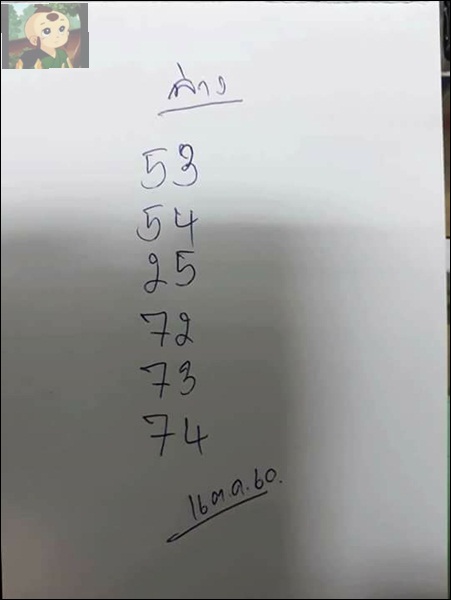 ล่าง
53
54
25
72
73
74
16 ต.ค. 60.